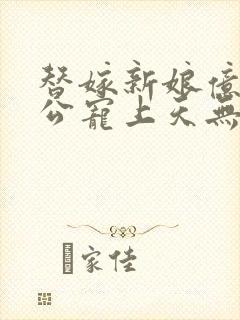 替嫁新娘億
公寵上天無
家佳